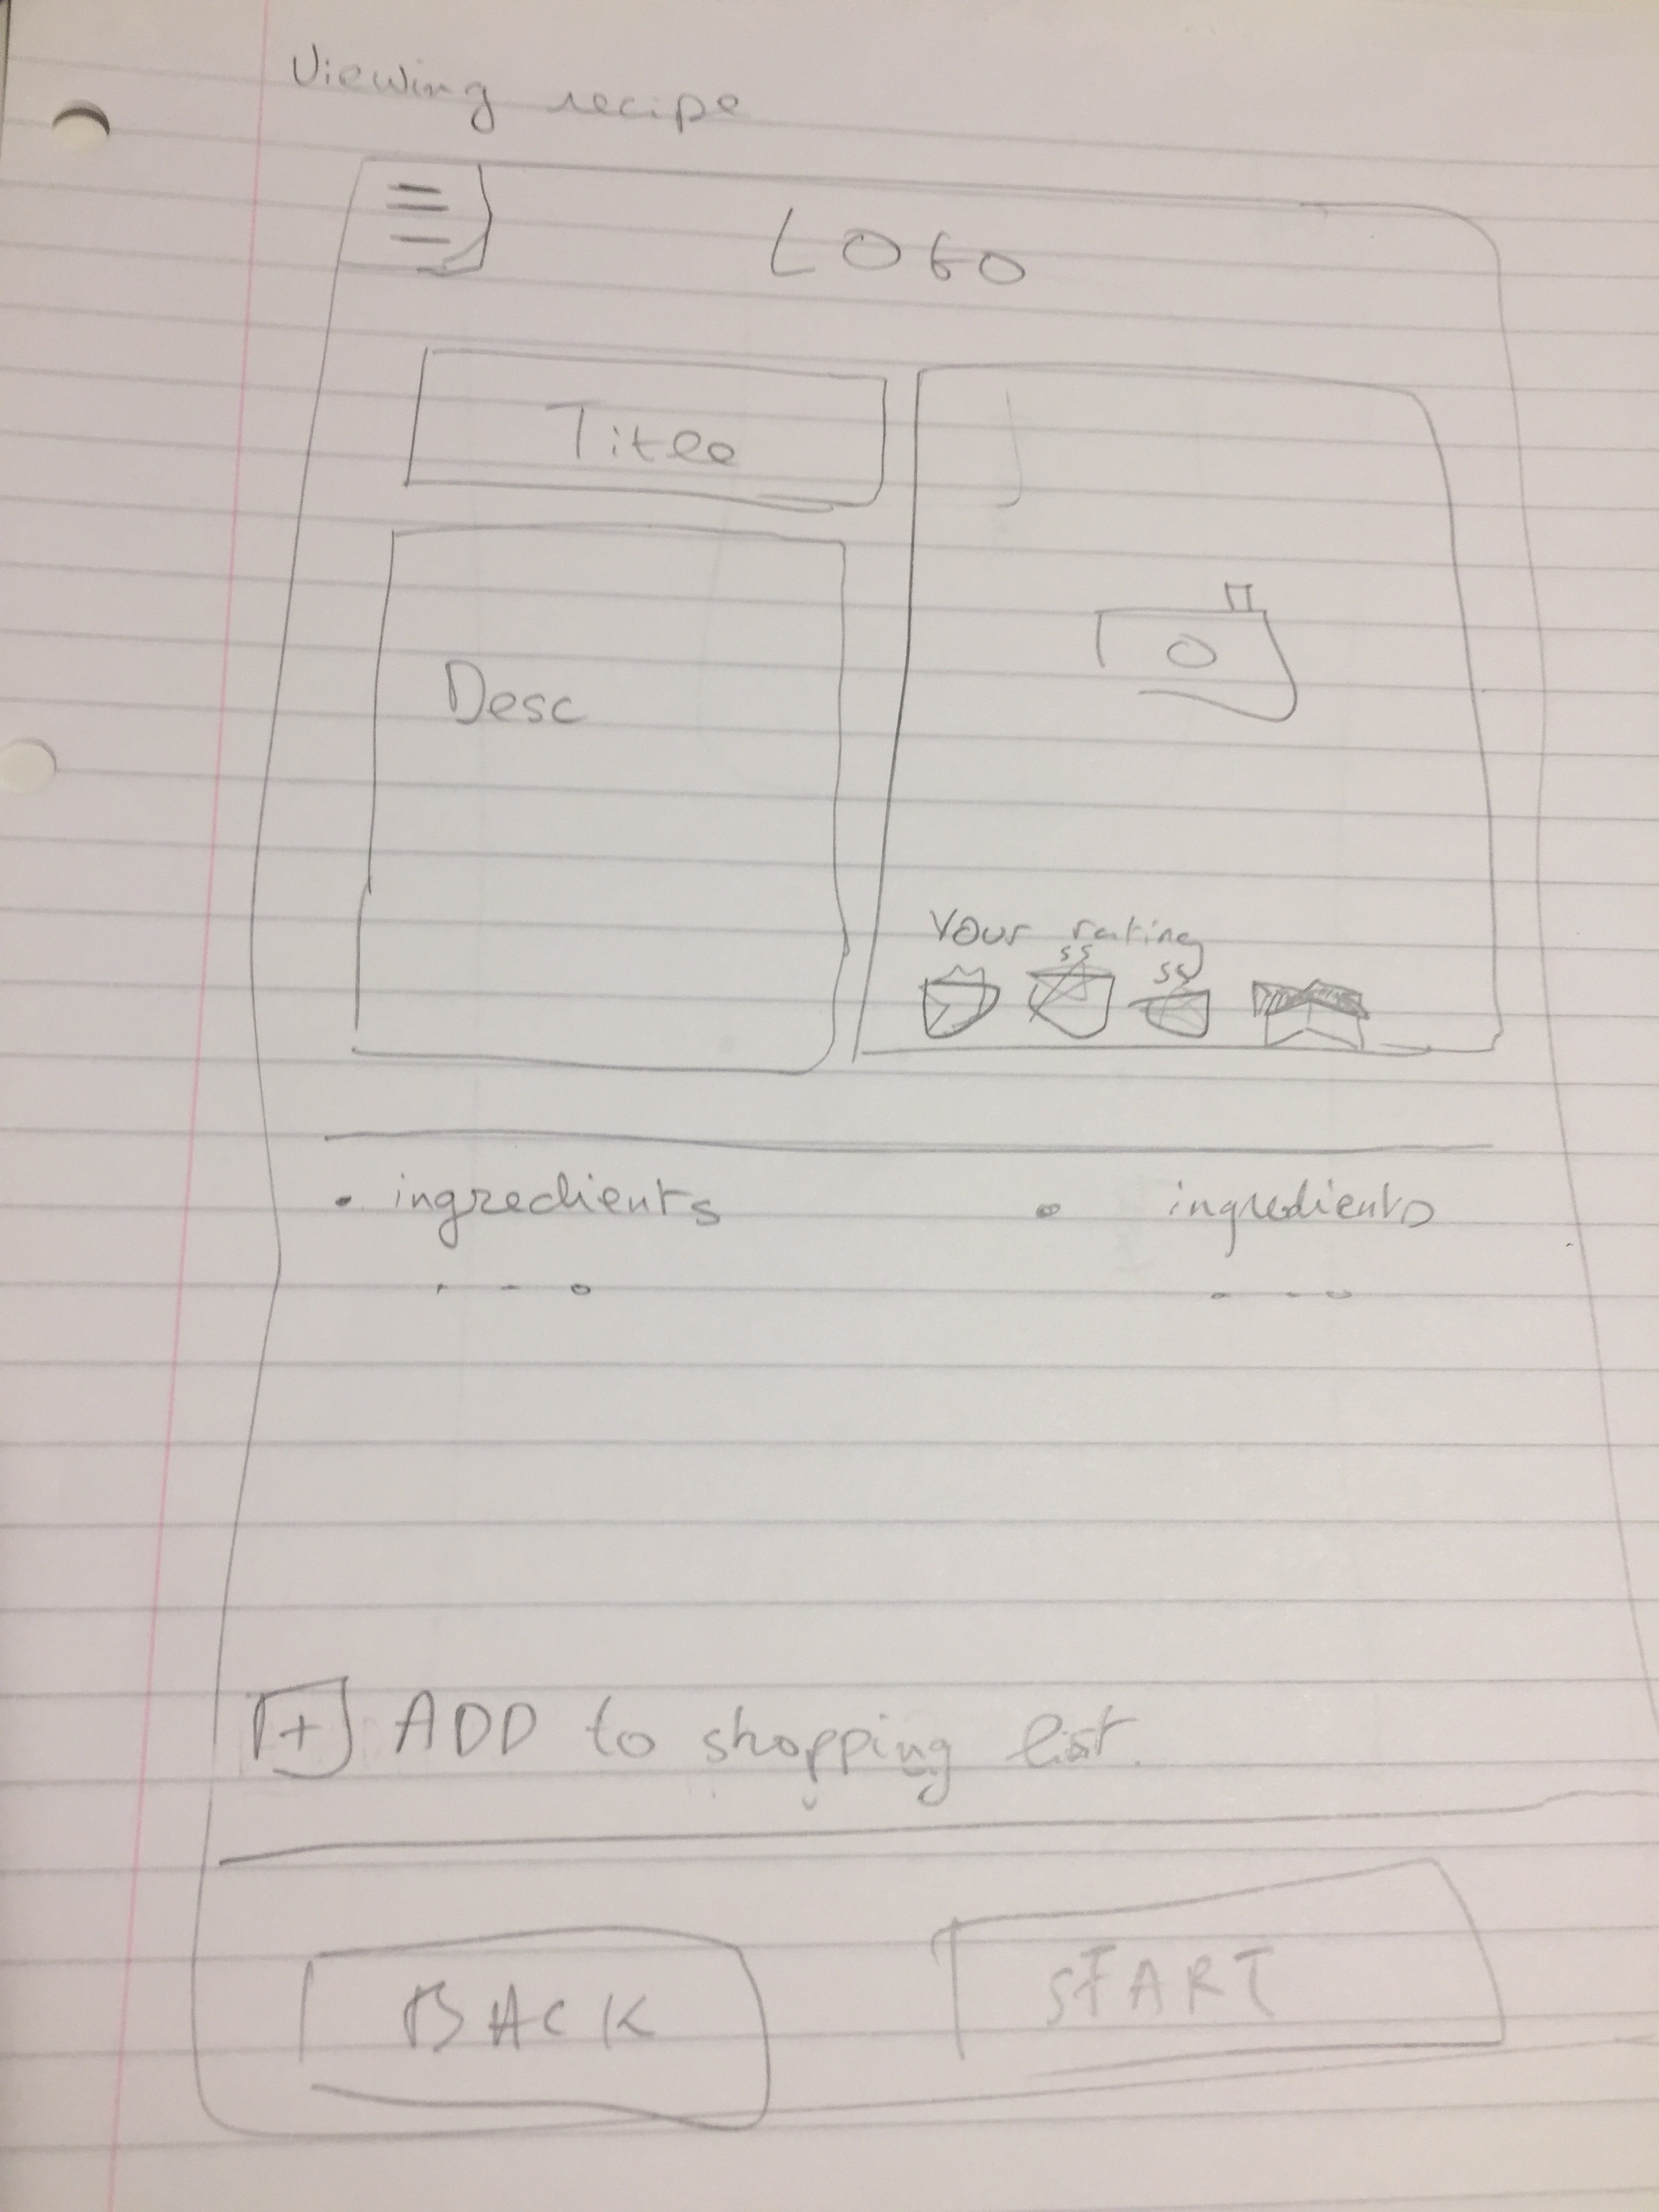 Viewing recipe
LOGO
Title
Desc
Your rating
• ingredients • ingredients
. . . . . .
+ ADD to shopping list.
BACK START